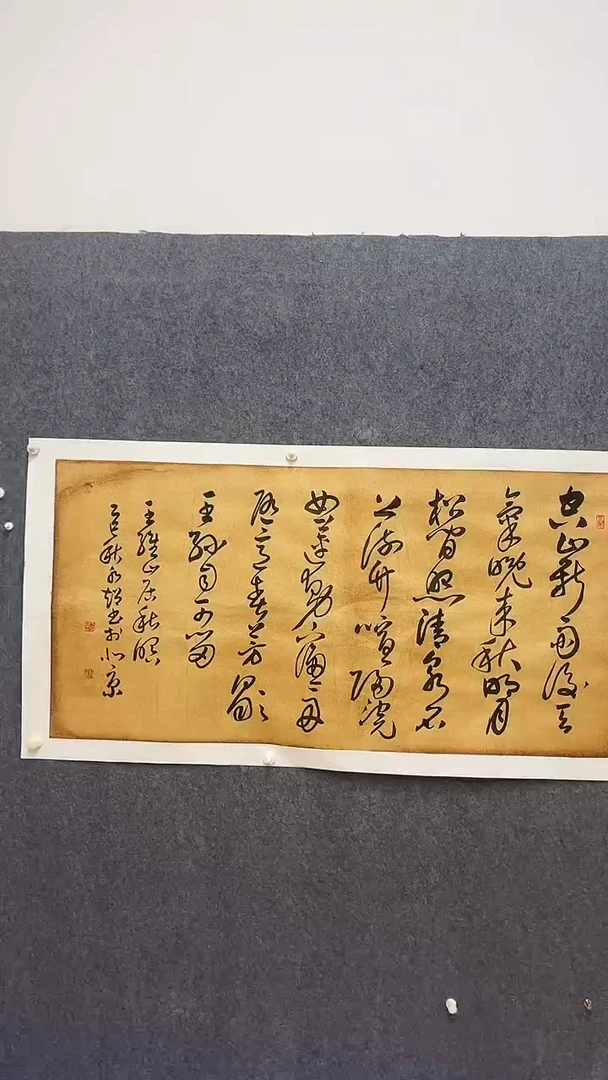 空山新雨後天
氣晚來秋明月
松間照清泉石
上流竹喧歸浣
女蓮動下漁舟
隨意春芳歇
王孫自可留
王維山居秋暝
秋書於北京